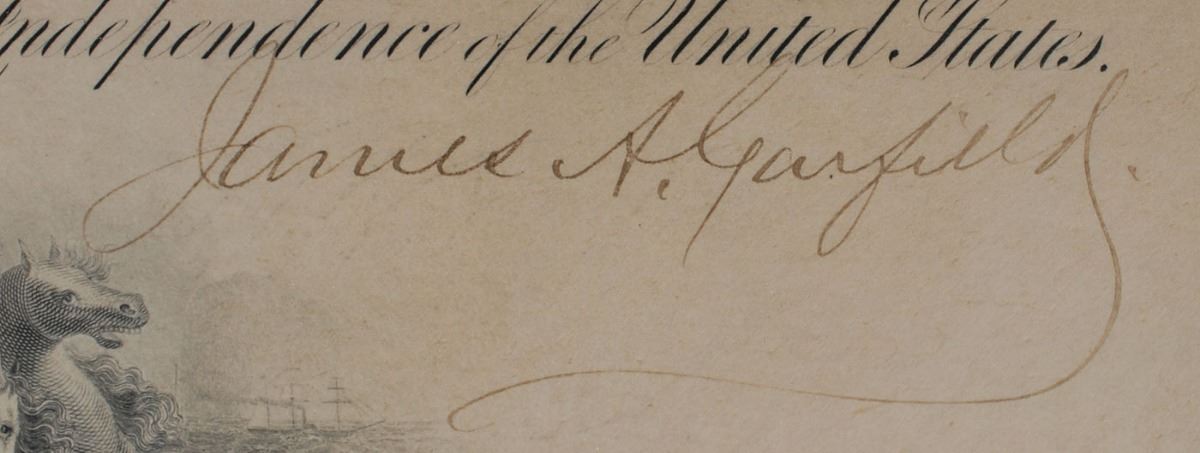 Independence of the United States.
James A. Garfield.